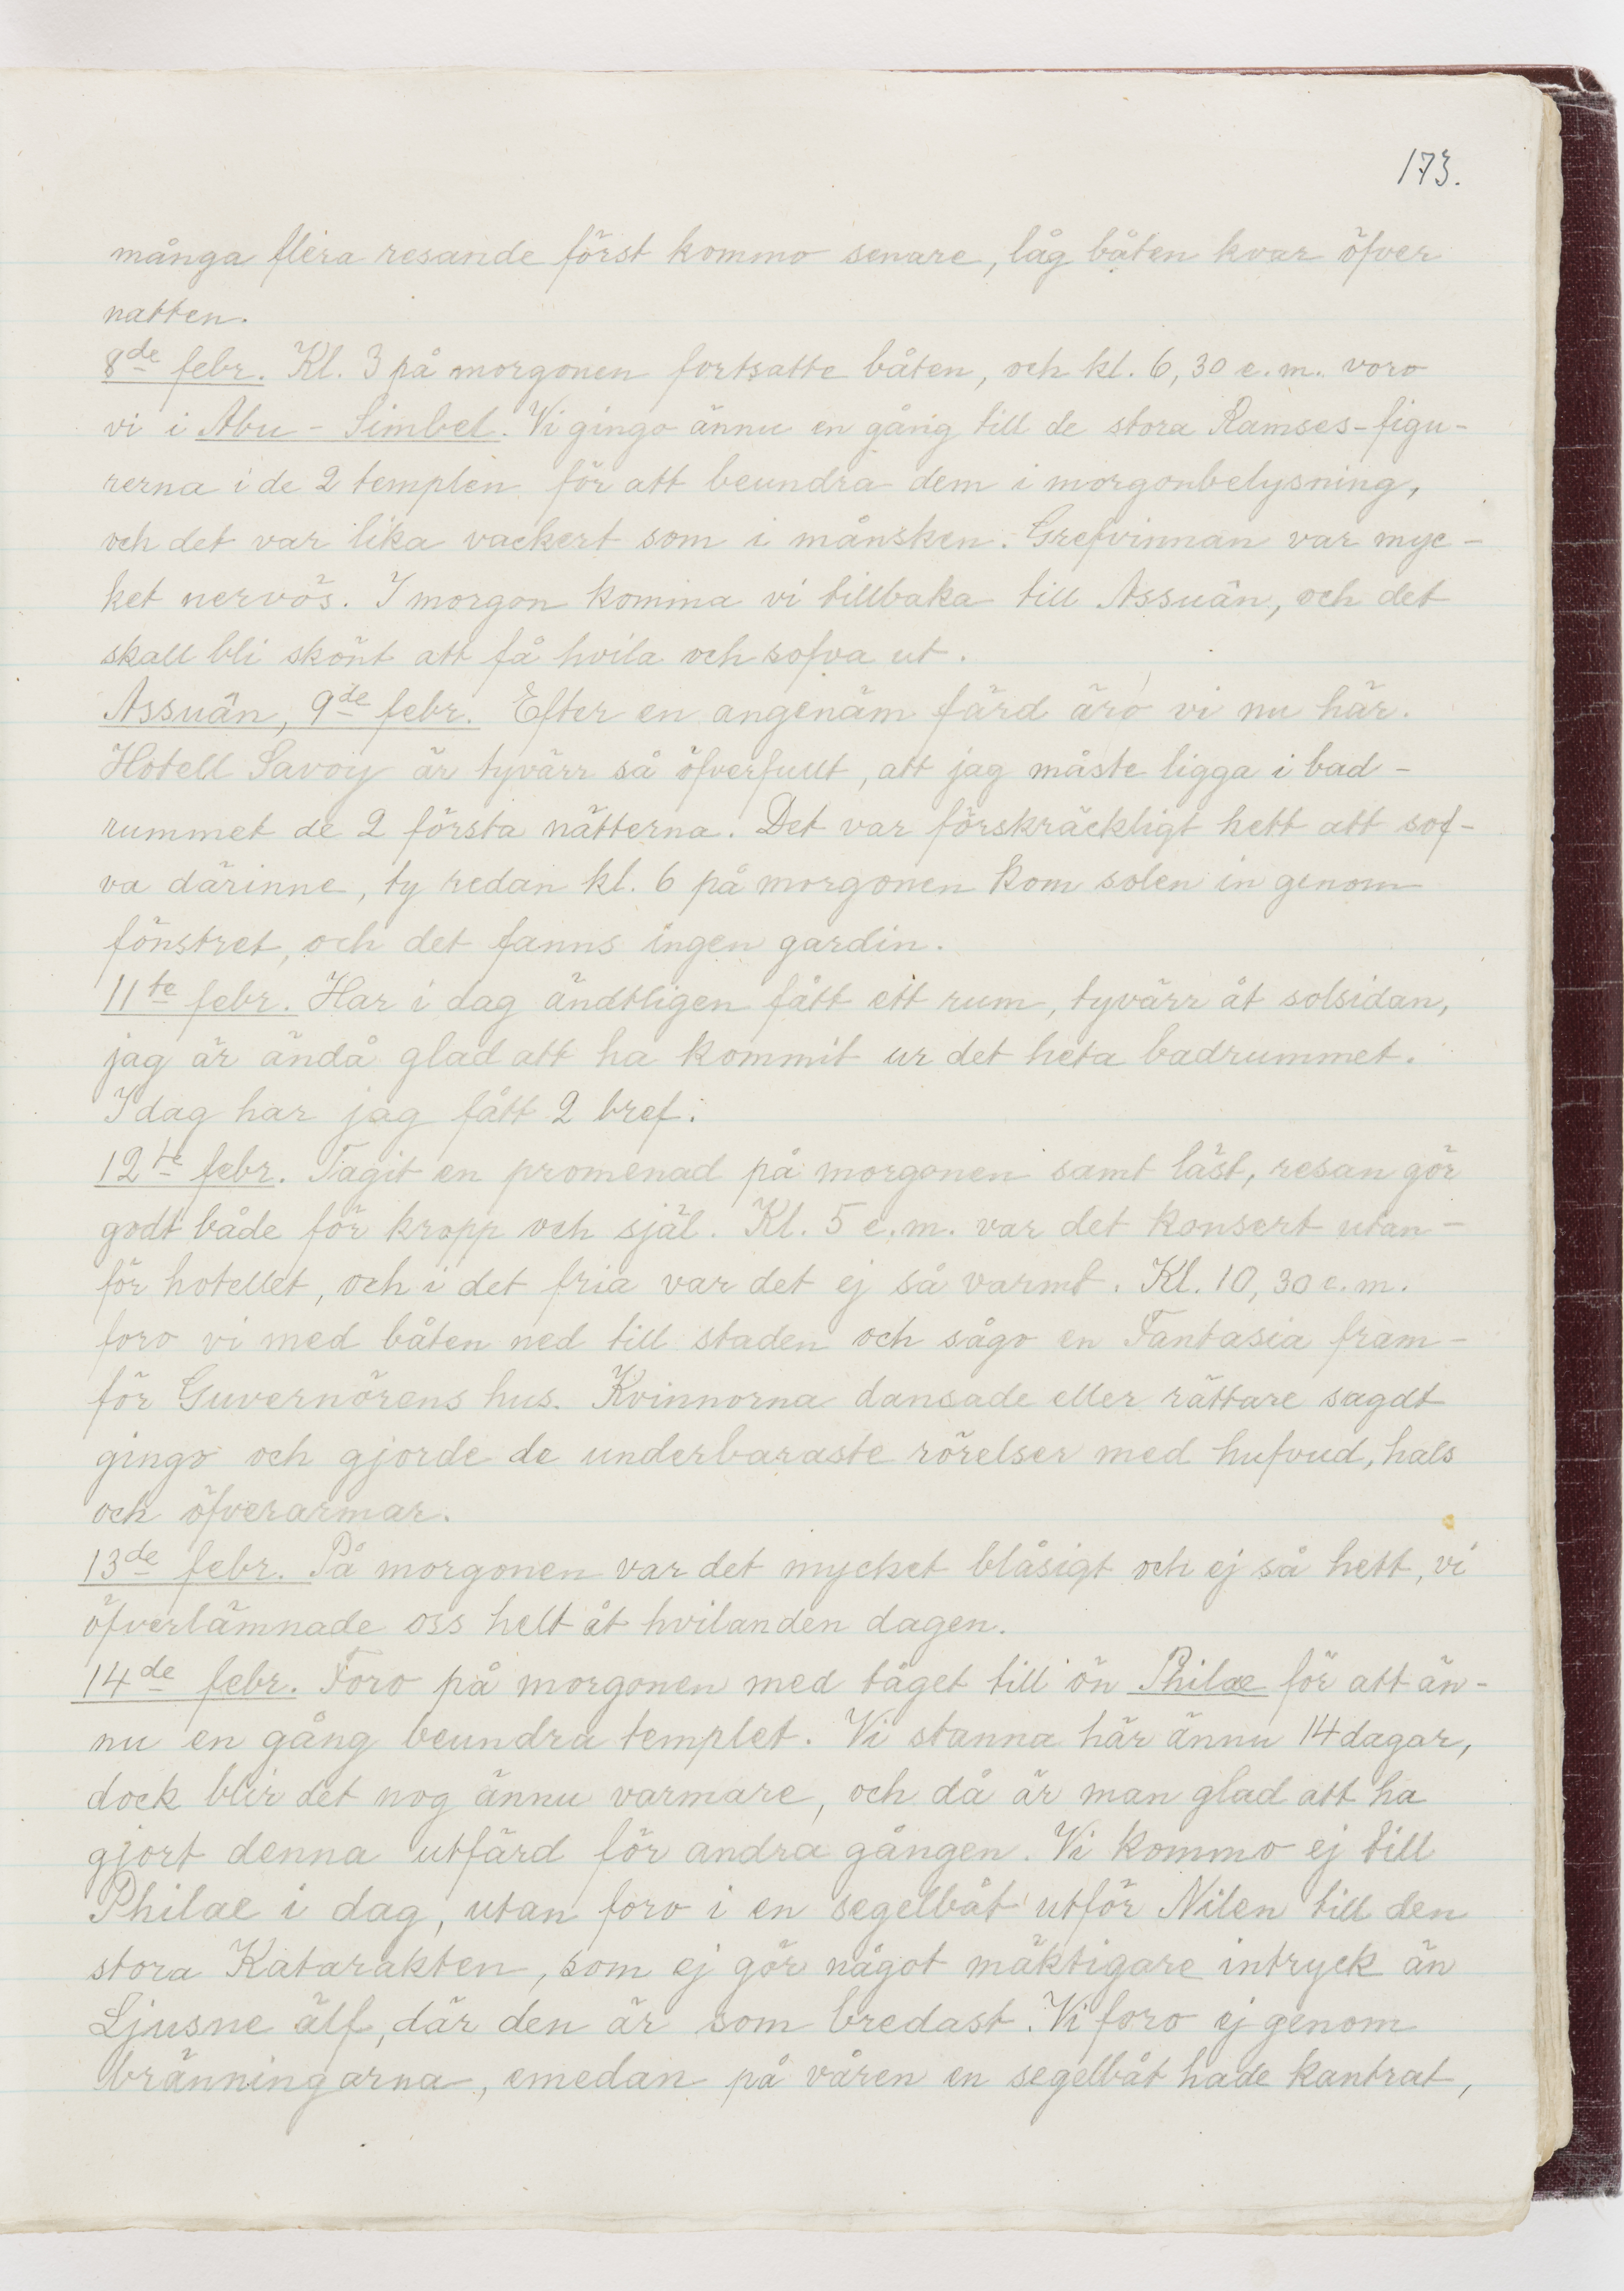 173.
många flera resande först kommo senare, låg båten kvar öfver
natten.
8de febr. Kl. 3 på morgonen fortsatte båten, och kl. 6,30 e.m. voro
vi i Abu-Simbel. Vi gingo ännu en gång till de stora Ramses-figu-
rerna i de 2 templen för att beundra dem i morgonbelysning,
och det var lika vackert som i månsken. Grefvinnan var myc-
ket nervös. I morgon komma vi tillbaka till Assuân, och det
skall bli skönt att få hvila och sofva ut.
Assuân, 9de febr. Efter en angenäm färd äro vi nu här.
Hotell Savoy är tyvärr så öfverfullt, att jag måste ligga i bad-
rummet de 2 första nätterna. Det var förskräckligt hett att sof-
va därinne, ty redan kl. 6 på morgonen kom solen in genom
fönstret, och det fanns ingen gardin.
11te febr. Har i dag ändtligen fått ett rum, tyvärr åt solsidan,
jag är ändå glad att ha kommit ur det heta badrummet.
I dag har jag fått 2 bref.
12te febr. Tagit en promenad på morgonen samt läst, resan gör
godt både för kropp och själ. Kl. 5 e.m. var det konsert utan-
för hotellet, och i det fria var det ej så varmt. Kl. 10,30 e.m.
foro vi med båten ned till staden och sågo en Fantasia fram-
för Guvernörens hus. Kvinnorna dansade eller rättare sagdt
gingo och gjorde de underbaraste rörelser med hufvud, hals
och öfverarmar.
13de febr. På morgonen var det mycket blåsigt och ej så hett, vi
öfverlämnade oss helt åt hvilanden dagen.
14de febr. Foro på morgonen med tåget till ön Philae för att än-
nu en gång beundra templet. Vi stanna här ännu 14 dagar,
dock blir det nog ännu varmare, och då är man glad att ha
gjort denna utfärd för andra gången. Vi kommo ej till
Philae i dag, utan foro i en segelbåt utför Nilen till den
stora Katarakten, som ej gör något mäktigare intryck än
Ljusne älf, där den är som bredast. Vi foro ej genom
bränningarna, emedan på våren en segelbåt hade kantrat,